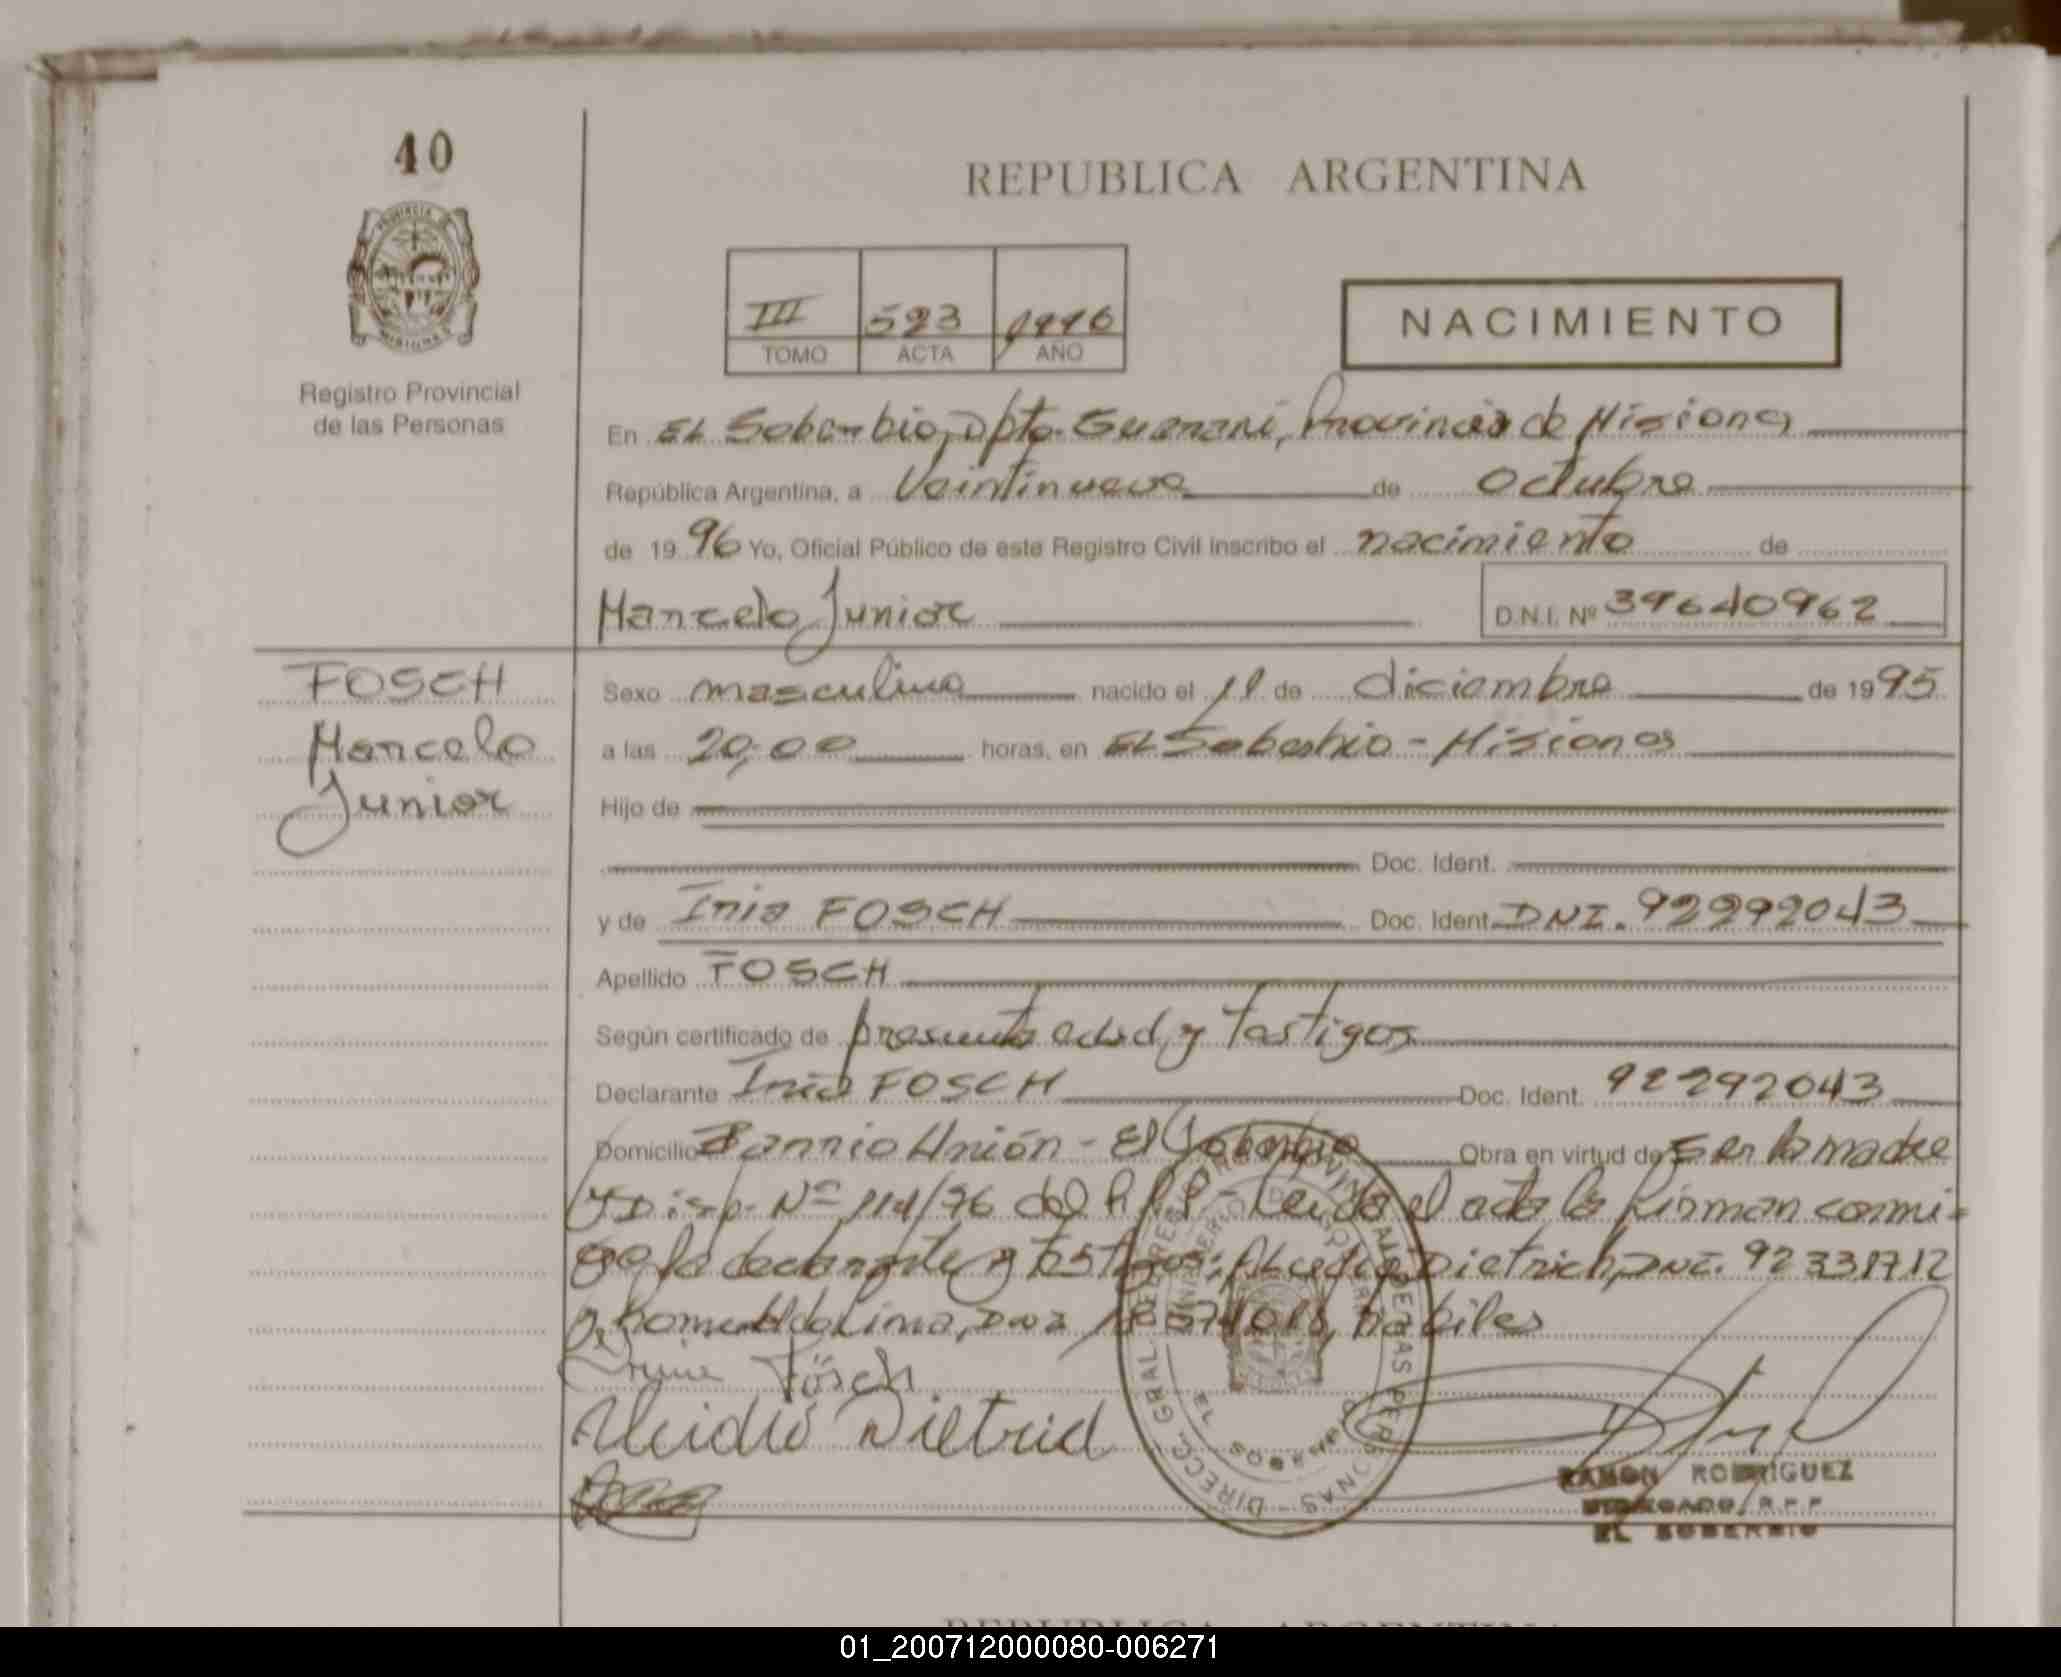 40
REPUBLICA ARGENTINA
III 523 1996
TOMO ACTA AÑO
NACIMIENTO
Registro Provincial
de las Personas
En EL Soberbio, Dpto. Guarani, Provincia de Misiones
República Argentina, a Veintinueve de Octubre
de 1996 Yo, Oficial Público de este Registro Civil inscribo el nacimiento de
Marcelo Junior D.N.I. Nº 39640962
FOSCH
Marcelo
Junior
Sexo masculino nacido el 11 de diciembre de 1995
a las 20,00 horas, en EL Soberbio - Misiones
Hijo de
Doc. Ident.
y de Iria FOSCH Doc. Ident. DNI. 92292043
Apellido FOSCH
Según certificado de presunta edad y Testigos
Declarante Iria FOSCH Doc. Ident. 92292043
Domicilio Barrio Unión - El Soberbio Obra en virtud de ser la madre
y Disp. Nº 114/96 del R.P.P. - Leida el acta la firman conmi-
go la declarante y Testigos: Alcidio Dietrich, DNI. 92331712
y Lima, DNI hábiles
Fösch
Alcidio Dietrich
DIRECC. GRAL. DE REGISTRO PROVINCIAL DE LAS PERSONAS
EL SOBERBIO
RAMON RODRIGUEZ
DELEGADO R.P.P.
EL SOBERBIO
REPUBLICA ARGENTINA
01_200712000080-006271